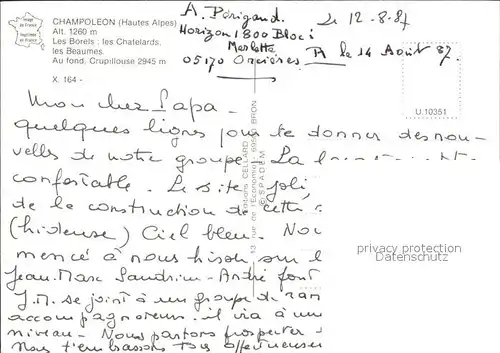 Image
de France
Imprimée
en France
CHAMPOLEON (Hautes Alpes)
Alt. 1260 m
Les Borels ; les Chatelards,
les Beaumes.
Au fond, Crupillouse 2945 m
X. 164 -
A. Périgaud.
Horizon 1800 Bloc i
Merlette
05170 Orcières
Le 12-8-87
R le 14 Août 87.
U.10351
Mon cher Papa -
quelques lignes pour te donner des nou-
velles de notre groupe. La
confortable. Le site joli,
de la construction de cette
(hideuse) Ciel bleu. Nou
mencé à nous hisser sur l
Jean-Marc Sandrine - André font
J.M. se joint à un groupe de ran
accompagnateur. il via à un
niveau - Nous partons prospecter
Nous t'embrassons tous affectueusement
Editions CELLARD
13 rue de l'Economie - 69500 BRON
© SPADEM
privacy protection
Datenschutz